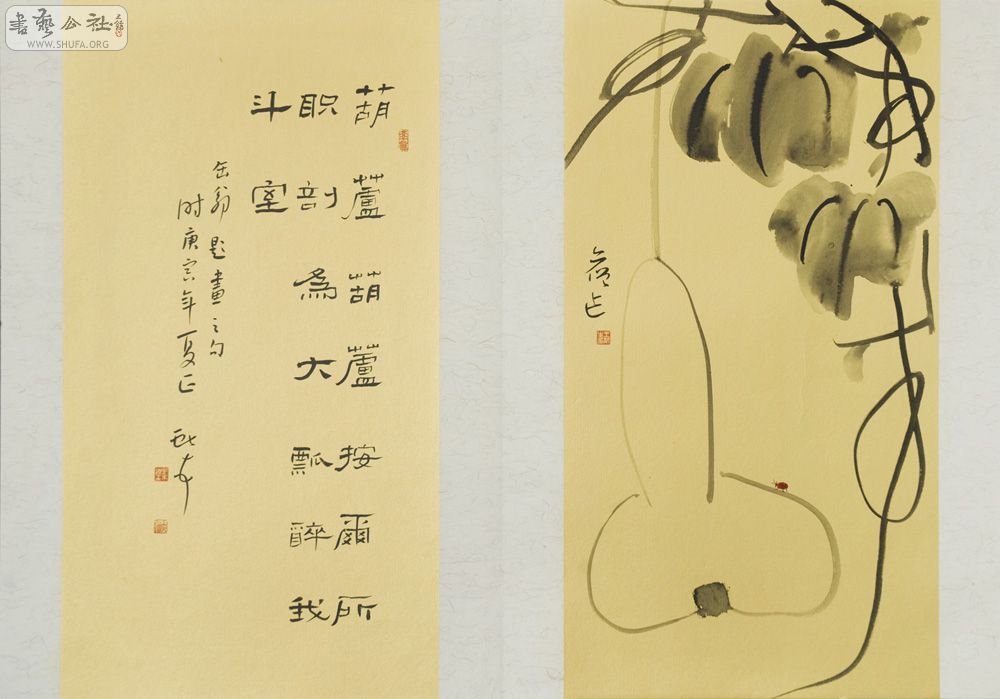 書藝公社
WWW.SHUFA.ORG
葫蘆葫蘆按爾所
职剖為大瓢醉我
斗室
缶翁题畫之句
时庚寅年夏正